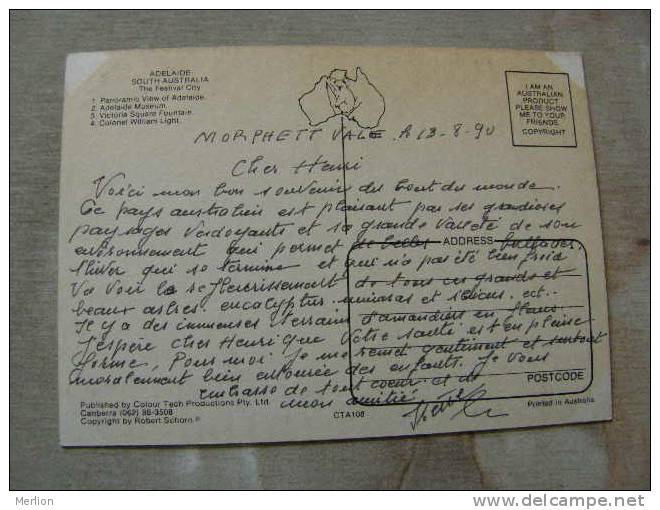 ADELAIDE
SOUTH AUSTRALIA
The Festival City
1. Panoramic View of Adelaide.
2. Adelaide Museum.
3. Victoria Square Fountain.
4. Colonel William Light.
I AM AN
AUSTRALIAN
PRODUCT
PLEASE SHOW
ME TO YOUR
FRIENDS
COPYRIGHT
MORPHETT VALE. A 13-8-90
Cher Henri
Voici mon bon souvenir du bout du monde.
Ce pays australien est plaisant par ses grandioses
paysages verdoyants et sa grande variété de son
environnement qui permet de belles ballades.
ADDRESS
l'hiver qui se termine et qui n'a pas été bien froid
Va voir le refleurissement de tous ces grands et
beaux arbres. eucalyptus. mimosas et ect..
Il y a des immenses terrains d'amandiers en fleurs
J'espère cher Henri que Votre santé est en pleine
forme, Pour moi je me remet gentiment et surtout
moralement bien entourée des enfants. Je vous
POSTCODE
embrasse de tout coeur et
mon amitié
Published by Colour Tech Productions Pty. Ltd.
Canberra (062) 98-3508
Copyright by Robert Schorn ®
CTA108
Printed in Australia
Merlion
www.delcampe.net